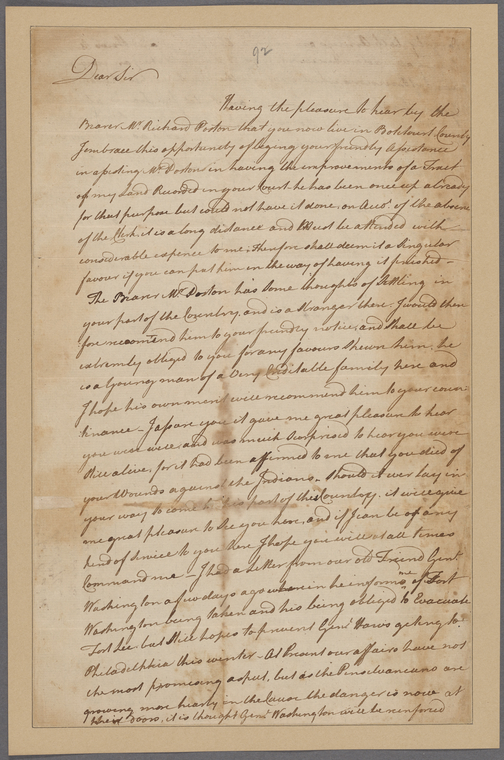 92
Dear Sir
Having the pleasure to hear by the
Bearer Mr. Richard Poston that you now live in Botetourt County
I embrace this opportunity of beging your friendly Assistance
in assisting Mr. Poston in having the improvements of a Tract
of my Land Recorded in your Court. he has been once up already
for that purpose but could not have it done, on Acct. of the absence
of the Clerk, it is a long distance and Must be attended with
considerable expence to me; Therefore shall deem it a Singular
favour if you can put him in the way of having it finished –
The Bearer Mr. Poston has some thoughts of Setling in
your part of the Country, and is a Stranger there; I would there
fore recommend him to your friendly notice, and shall be
extremly obliged to you for any favours Shewn him, he
is a Young man of a Very Creditable family here and
I hope his own merit will recommend him to your coun-
tinance – I assure you it gave me great pleasure to hear
you were well, and was much Surprised to hear you were
Still alive, for it had been affirmed to me that you died of
your Wounds against the Indians – Should it ever lay in
your way to come to this part of the Country, it will give
me great pleasure to See you here, and if I can be of any
kind of Service to you here I hope you will at all times
Command me – I had a Letter from our old Friend Genl.
Washington a few days ago wherein he informs me of Fort
Washington being taken and his being obliged to Evacuate
Fort Lee but Still hopes to prevent Genl. Hows geting to
Philadelphia this winter – At Present our affairs have not
the most promising aspect, but as the Pensilvanians are
growing more hearty in the Cause the danger is now at
their doors, it is thought Genl. Washington will be reinforced